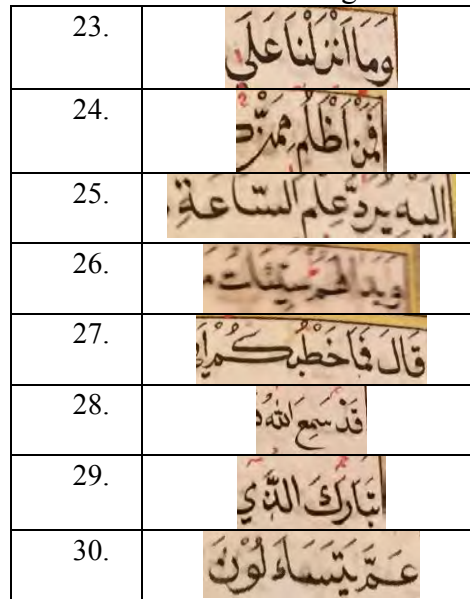 23. وَمَا أَنْزَلْنَا عَلَى
24. فَمَنْ أَظْلَمُ مِمَّنْ
25. إِلَيْهِ يُرَدُّ عِلْمُ السَّاعَةِ
26. وَبَدَا لَهُمْ سَيِّئَاتُ
27. قَالَ فَمَا خَطْبُكُمْ
28. قَدْ سَمِعَ اللَّهُ
29. تَبَارَكَ الَّذِي
30. عَمَّ يَتَسَاءَلُونَ